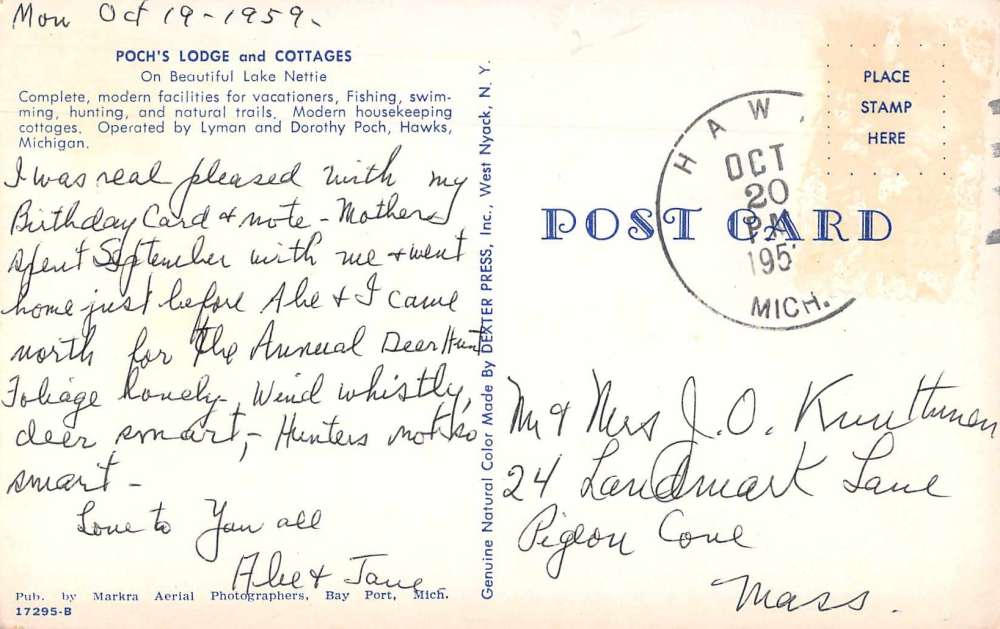 Mon Oct 19-1959.
POCH'S LODGE and COTTAGES
On Beautiful Lake Nettie
Complete, modern facilities for vacationers, Fishing, swim-
ming, hunting, and natural trails. Modern housekeeping
cottages. Operated by Lyman and Dorothy Poch, Hawks,
Michigan.
I was real pleased with my
Birthday Card & note - Mother
spent September with me & went
home just before Abe & I came
north for the Annual Deer Hunt
Foliage lovely, Wind whistly,
deer smart, - Hunters not so
smart -
Love to You all
Abe & Jane
Pub. by Markra Aerial Photographers, Bay Port, Mich.
17295-B
Genuine Natural Color Made By DEXTER PRESS, Inc., West Nyack, N. Y.
PLACE
STAMP
HERE
HAW
OCT
20
PM
195
MICH.
POST CARD
Mr & Mrs J. O.
24 Landmark Lane
Pigeon Cove
Mass.